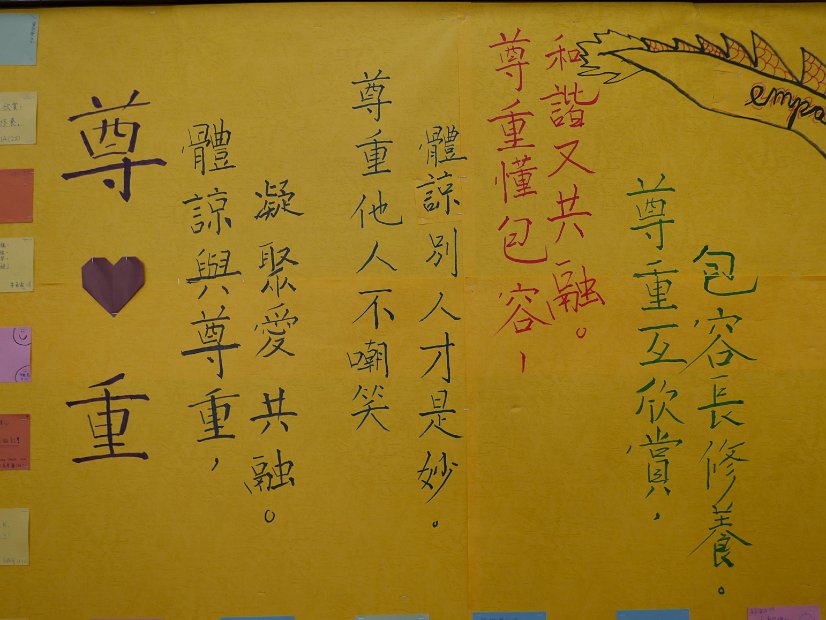 尊重
體諒與尊重，
凝聚愛共融。
尊重他人不嘲笑
體諒別人才是妙。
尊重懂包容，
和諧又共融。
尊重互欣賞，
包容長修養。